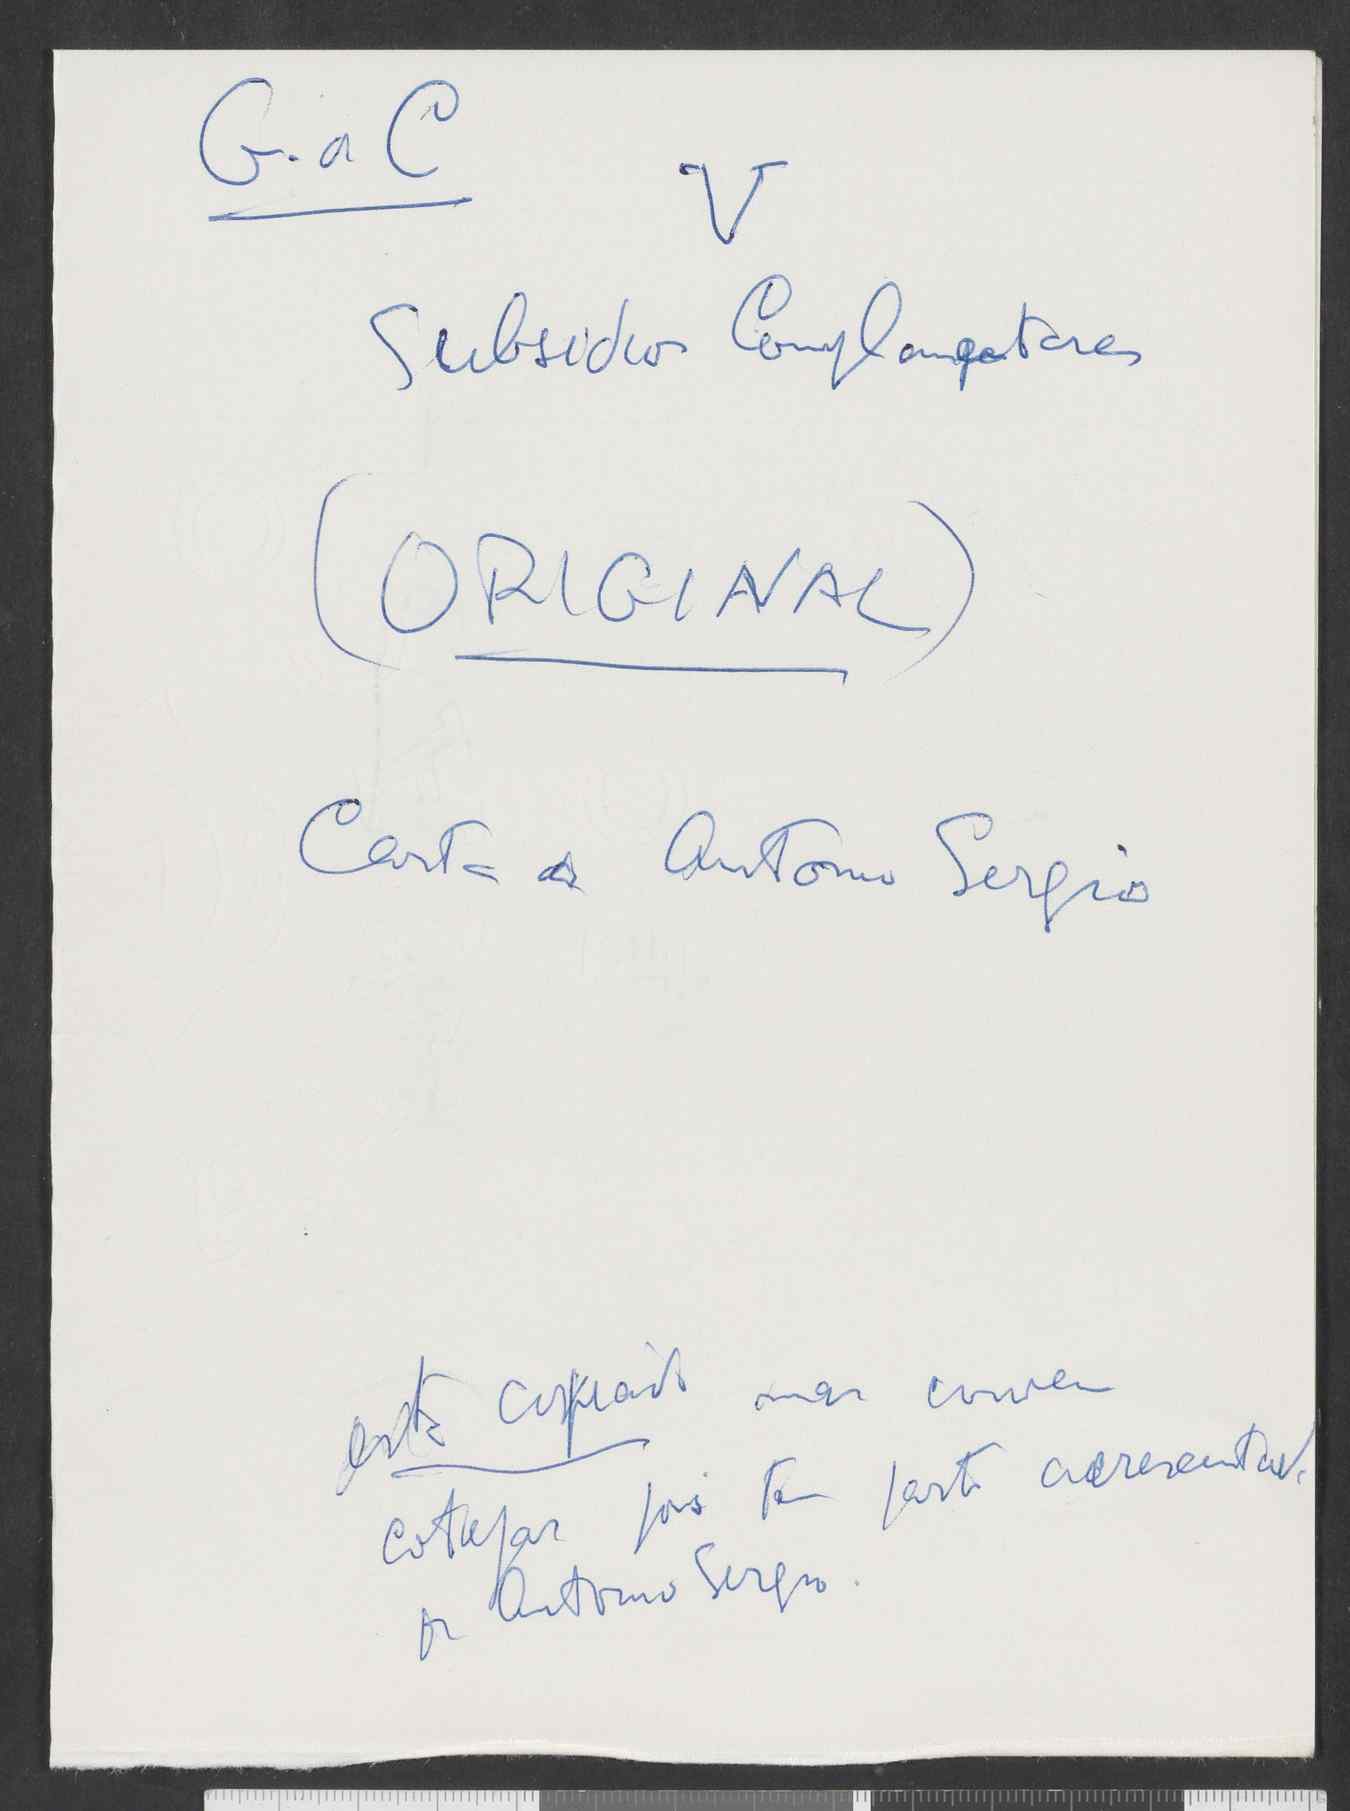 G. a C
V
Subsidios Complementares
(ORIGINAL)
Carta a Antonio Sergio
está copiado mas convem
cotejar pois tem parte acrescentad.
pr Antonio Sergio.